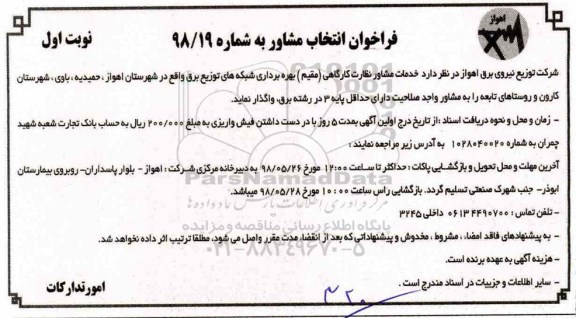 اهواز
فراخوان انتخاب مشاور به شماره ۹۸/۱۹
نوبت اول
شرکت توزیع نیروی برق اهواز در نظر دارد خدمات مشاور نظارت کارگاهی (مقیم) بهره برداری شبکه های توزیع برق واقع در شهرستان اهواز ، حمیدیه ، باوی ، شهرستان
کارون و روستاهای تابعه را به مشاور واجد صلاحیت دارای حداقل پایه ۳ در رشته برق، واگذار نماید.
- زمان و محل و نحوه دریافت اسناد :از تاریخ درج اولین آگهی بمدت ۵ روز با در دست داشتن فیش واریزی به مبلغ ۲۰۰/۰۰۰ ریال به حساب بانک تجارت شعبه شهید
چمران به شماره ۱۰۲۸۰۴۰۰۲۰ به آدرس زیر مراجعه نمایند :
آخرین مهلت و محل تحویل و بازگشایی پاکات : حداکثر تا ساعت ۱۲:۰۰ مورخ ۹۸/۰۵/۲۶ به دبیرخانه مرکزی شرکت : اهواز - بلوار پاسداران- روبروی بیمارستان
ابوذر- جنب شهرک صنعتی تسلیم گردد. بازگشایی راس ساعت ۱۰:۰۰ مورخ ۹۸/۰۵/۲۸ میباشد.
- تلفن تماس : ۰۶۱۳۴۴۹۰۷۰۰ داخلی ۳۲۴۵
- به پیشنهادهای فاقد امضاء ، مشروط ، مخدوش و پیشنهاداتی که بعد از انقضاء مدت مقرر واصل می شود، مطلقا ترتیب اثر داده نخواهد شد.
- هزینه آگهی به عهده برنده است.
- سایر اطلاعات و جزییات در اسناد مندرج است .
امور تدارکات
ParsNamadData
پایگاه اطلاع رسانی مناقصه و مزایده
۰۲۱-۸۸۳۴۹۶۷۰-۵